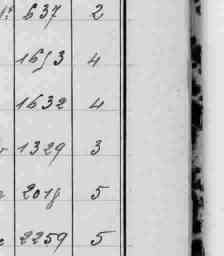 637 2
1653 4
1632 4
1329 3
2018 5
2259 5